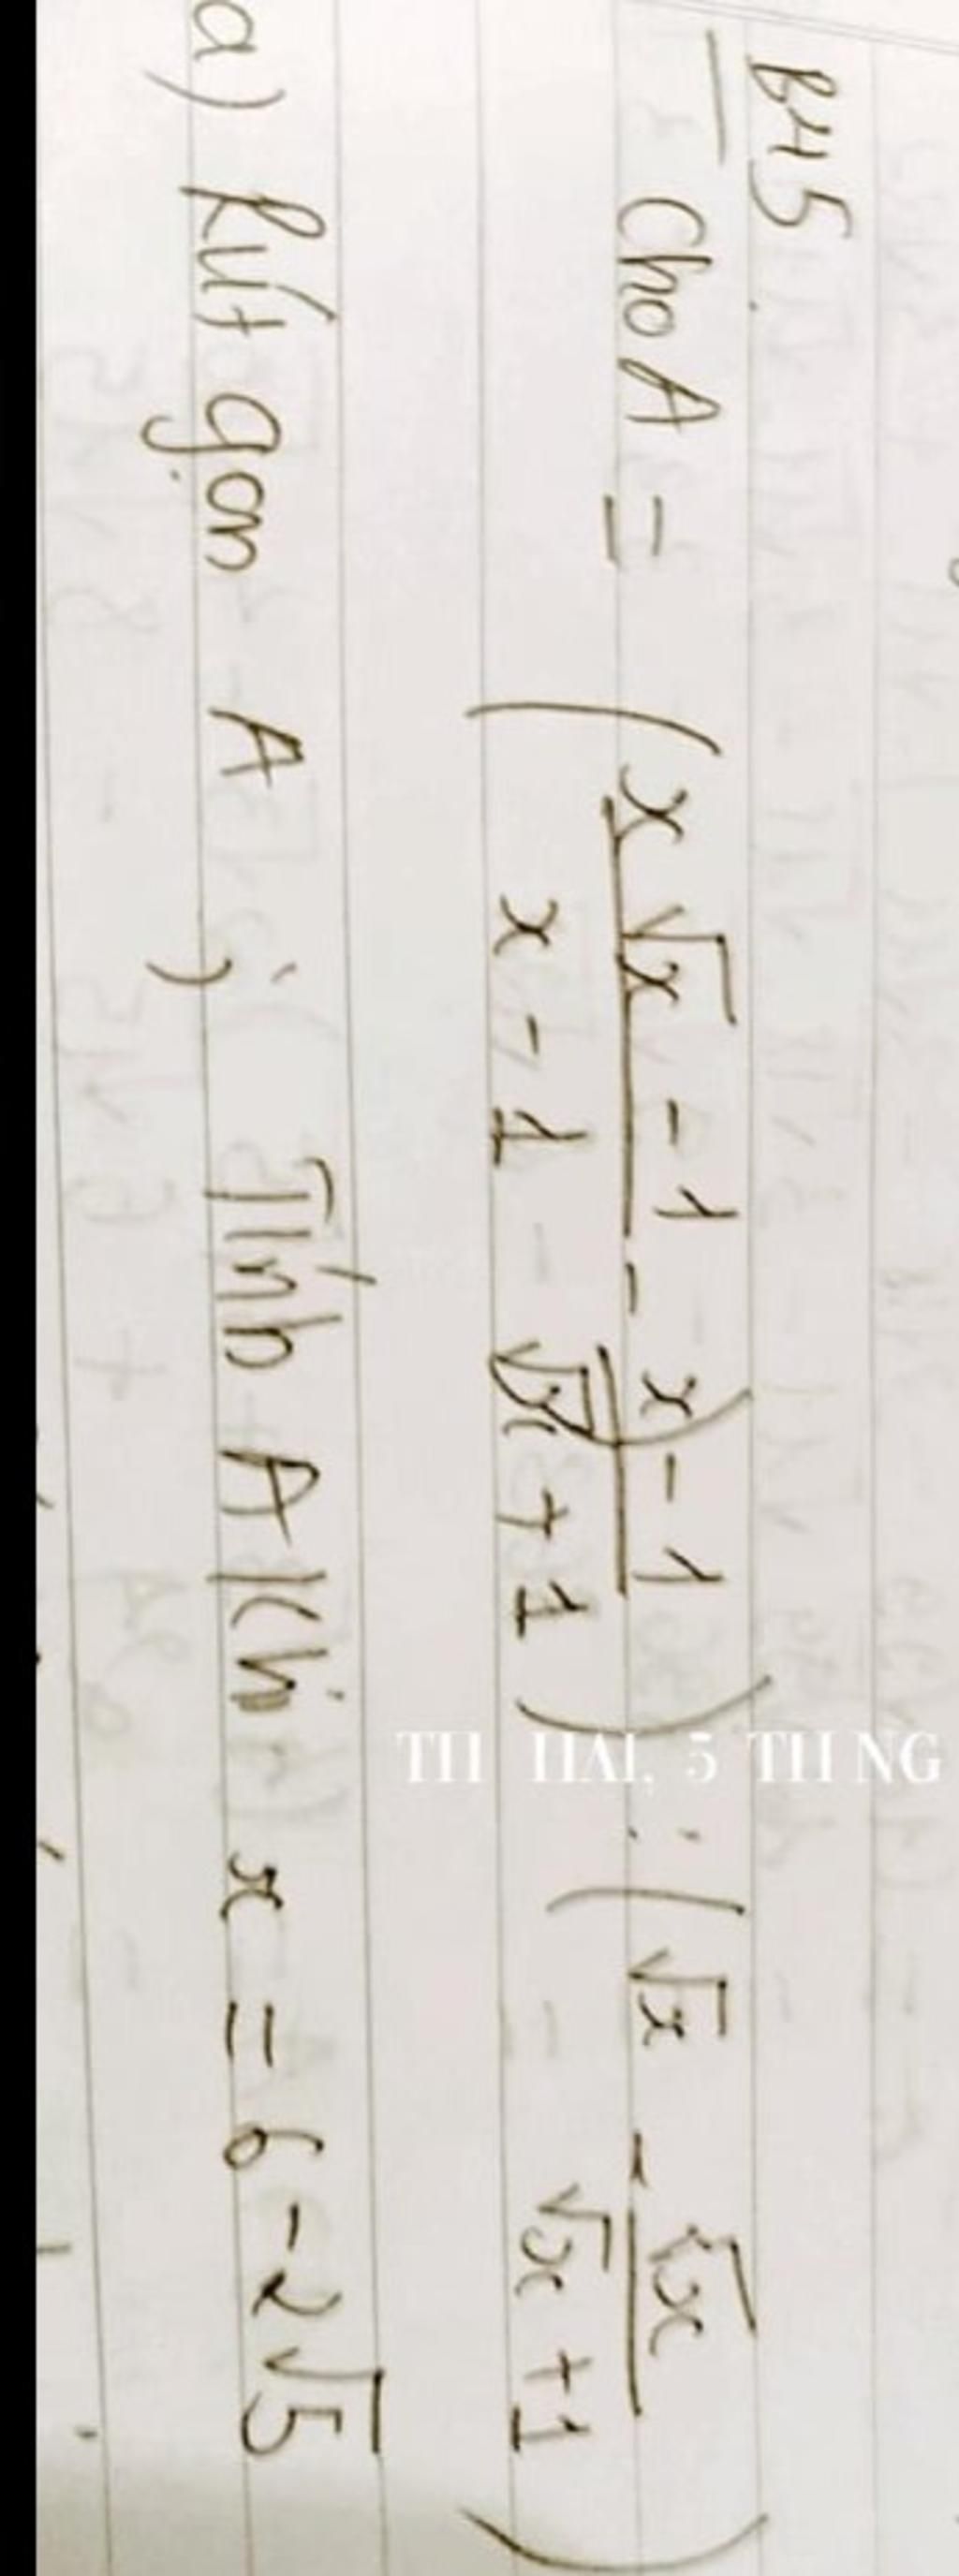 Bài 5.
Cho A = ( (x√x - 1)/(x - 1) - (x - 1)/(√x + 1) ) : ( √x - √x/(√x + 1) )
a) Rút gọn A ; Tính A khi x = 6 - 2√5
TH HAI, 5 TH NG